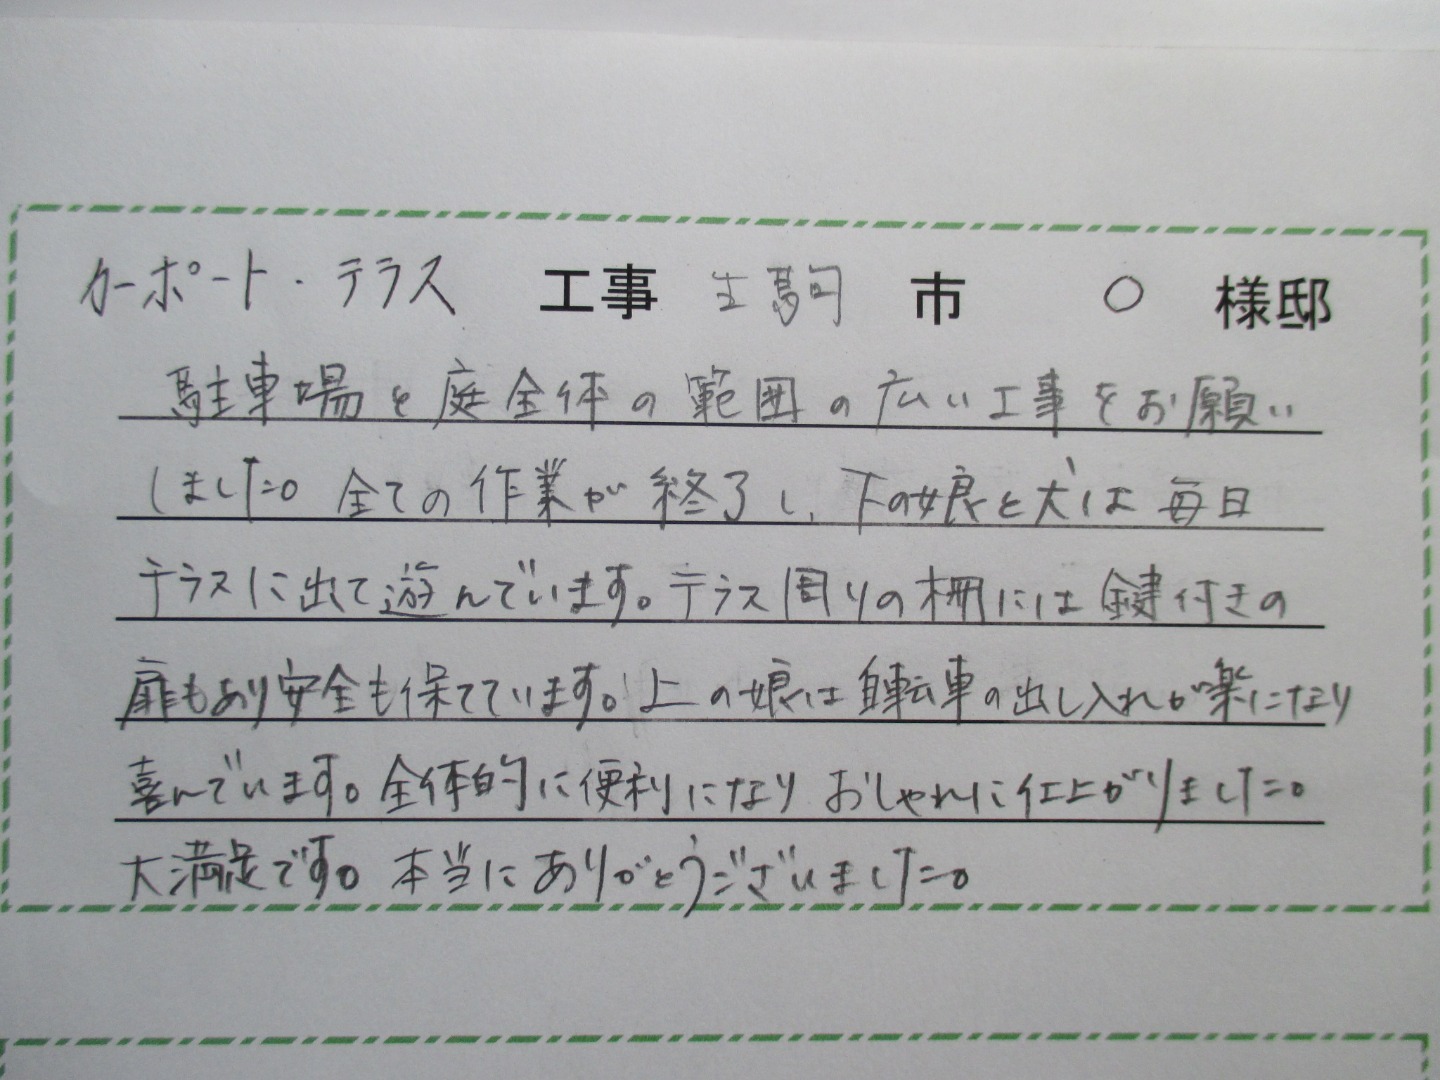 カーポート・テラス 工事 生駒 市 〇 様邸
駐車場と庭全体の範囲の広い工事をお願い
しました。全ての作業が終了し、下の娘と犬は毎日
テラスに出て遊んでいます。テラス周りの柵には鍵付きの
扉もあり安全も保てています。上の娘は自転車の出し入れが楽になり
喜んでいます。全体的に便利になりおしゃれに仕上がりました。
大満足です。本当にありがとうございました。